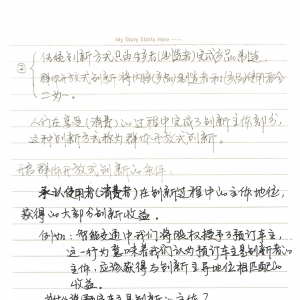 My Story Starts Here
② 传统创新方式只由生产者(制造者)完成产品制造
群体开放式创新将内容(产品)制造者和(产品)使用者合
二为一。
人们在享受(消费)的过程中完成了创新主体部分,
这种创新方式称为群体开放式创新。
开启群体开放式创新的条件:
承认使用者(消费者)在创新过程中的主体地位,
获得的大部分创新收益。
例如:智能交通中我们将股权授予了预订车主,
这一行为意味着我们认为预订车主是创新者的
主体,应该获得与创新主导地位相匹配的
收益。